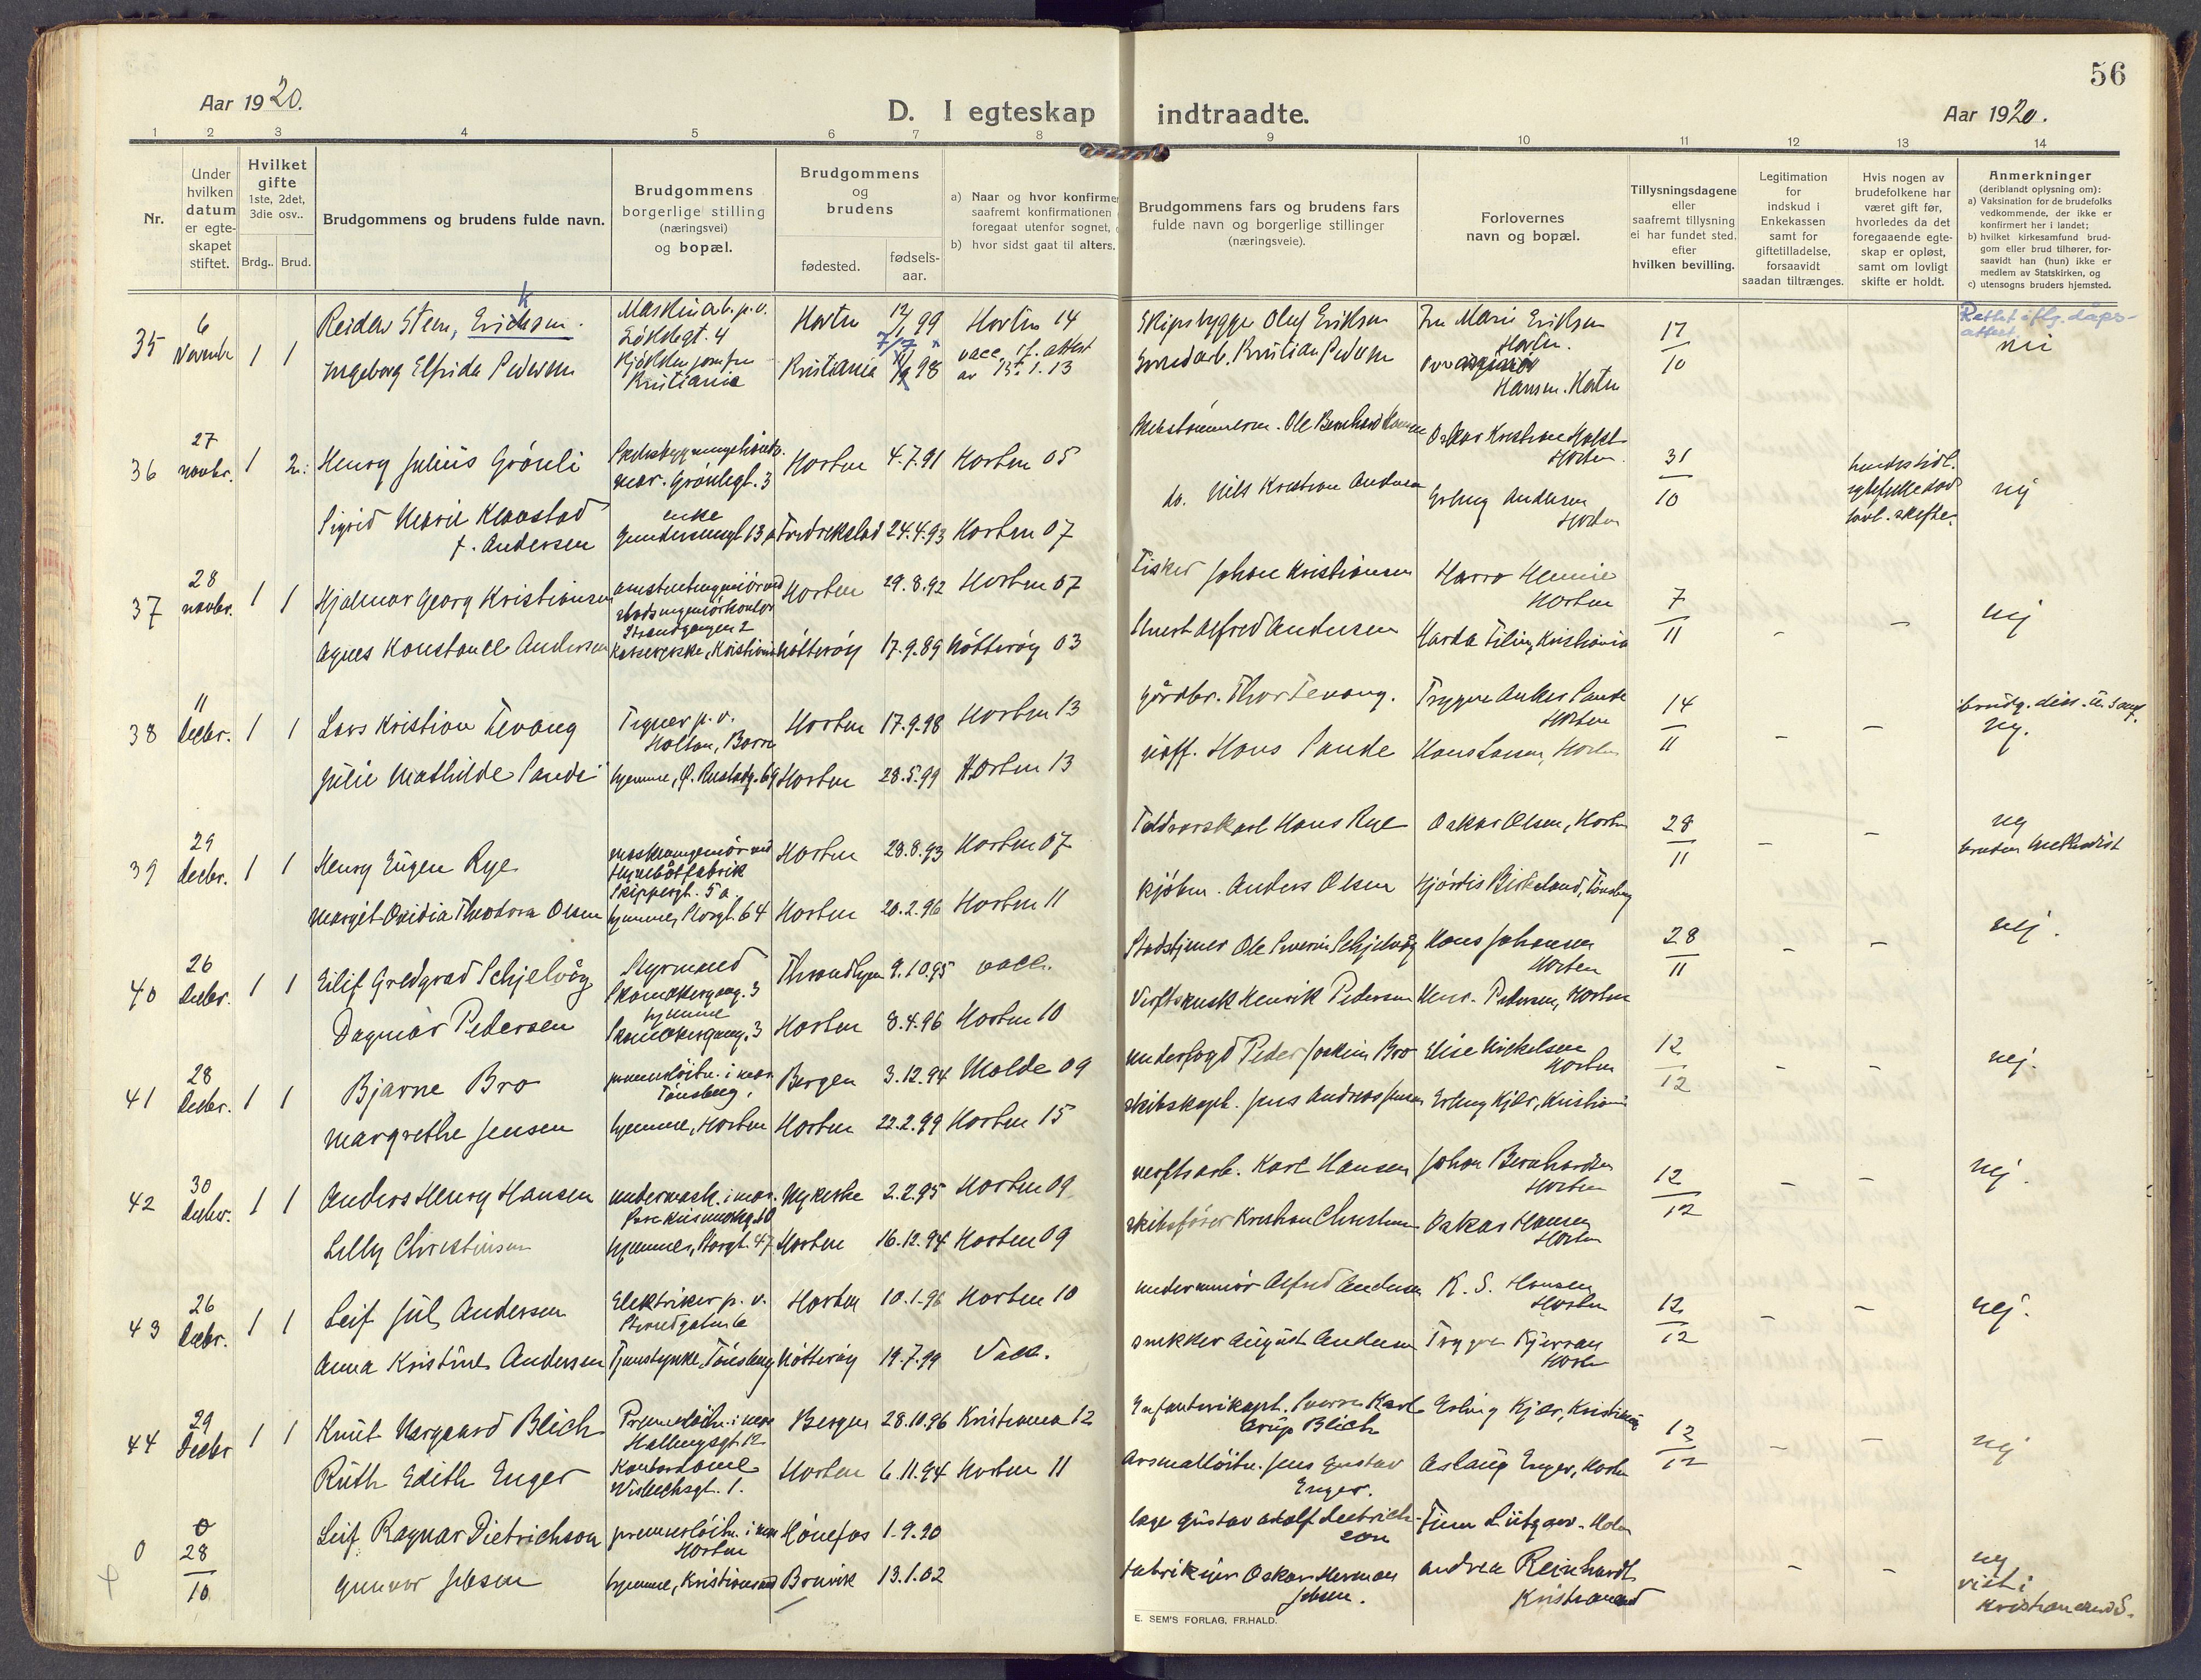 56
Aar 1920.
D. I egteskap indtraadte.
Aar 1920.
1 2 3 4 5 6 7 8 9 10 11 12 13 14
Nr.
Under hvilken datum er egteskapet stiftet.
Hvilket gifte 1ste, 2det, 3die osv..
Brdg.. Brud.
Brudgommens og brudens fulde navn.
Brudgommens borgerlige stilling (næringsvei) og bopæl.
Brudgommens og brudens
fødested.
fødsels-aar.
a) Naar og hvor konfirme
saafremt konfirmationen
foregaat utenfor sognet,
b) hvor sidst gaat til alters.
Brudgommens fars og brudens fars
fulde navn og borgerlige stillinger
(næringsveie).
Forlovernes
navn og bopæl.
Tillysningsdagene
eller
saafremt tillysning
ei har fundet sted.
efter
hvilken bevilling.
Legitimation
for
indskud i
Enkekassen
samt for
giftetilladelse,
forsaavidt
saadan tiltrænges.
Hvis nogen av
brudefolkene har
været gift før,
hvorledes da det
foregaaende egte-
skap er opløst,
samt om lovligt
skifte er holdt.
Anmerkninger
(deriblandt oplysning om):
a) Vaksination for de brudefolks
vedkommende, der ikke er
konfirmert her i landet;
b) hvilket kirkesamfund brud-
gom eller brud tilhører, for-
saavidt han (hun) ikke er
medlem av Statskirken, og
c) utensogns bruders hjemsted.
35 6 Novembr 1 1 Reidar Steen, Eriksen. Maskinarb. p.v. Horten 99 Horten 14 Skipsbygger Oluf Eriksen Fru Marie Eriksen Horten. 17/10 Rettet iflg. dåps-attest
Ingeborg Elfrida Pedersen Kristiania Kristiania 98 vacc. if. attest av 13.1.13 Kristian Pedersen Hansen. Horten nei
36 27 novbr. 1 2. Henry Julius Grönli Grönligt. 3 Horten 4.7.91 Horten 05 Ole Bernhard Hansen Oskar Kristian Holst Horten 31/10 nej
Sigrid Marie Klaustad f. Andersen enke Gundersensgt 13 a Fredrikstad 24.4.93 Horten 07 do. Nils Kristian Andersen Erling Andersen Horten
37 28 novbr. 1 1 Hjalmar Georg Kristiansen Strandgangen 2 Horten 29.8.92 Horten 07 Fisker Johan Kristiansen Harro Hennie Horten 7/11 - - nej
Agnes Konstance Andersen Kristiania Nötteröy 17.9.89 Nötteröy 03 Alfred Andersen Kristiania
38 11 Decbr. 1 1 Lars Kristian Tevang Tegner p.v. Holtan, Borre Horten 17.9.98 Horten 13 gårdbr. Thor Tevang. Trygve Anker Sande Horten 14/11 - - nej.
Julie Mathilde Sande hjemme, Horten 28.5.99 Horten 13 uoff. Hans Sande Hans Larsen, Horten
39 29 Decbr. 1 1 Henry Eugen Rye Skippergt. 5 a Horten 28.8.93 Horten 07 Hans Rye Oskar Olsen, Horten 28/11 - - nej
Margit Ovidia Theodora Olsen hjemme, Storgt. 64 Horten 20.2.96 Horten 11 kjöbm. Anders Olsen Hjördis Birkeland, Tönsberg bruden methodist
40 26 Decbr. 1 1 Eilif Gredgard Schjelvåg Styrmand Skomakergang. 3 Throndhjem 9.10.95 vacc. Ole Severin Schjelvåg Hans Johansen Horten 28/11 - - nej.
Dagmar Pedersen hjemme Skomakergang. 3 Horten 8.4.96 Horten 10 Henrik Pedersen Henr. Pedersen, Horten
41 28 Decbr. 1 1 Bjarne Bro premierlöitn. i mar. Tönsberg, Bergen 3.12.94 Molde 09 underfogd Peder Joakim Bro Elise Mickelsen Horten 12/12 - - nej.
Margrethe Jensen hjemme, Horten Horten 22.2.99 Horten 15 skibskapt. Jens Andreas Jensen Erling Kjær, Kristiania
42 30 Decbr. 1 1 Anders Henry Hansen undermask. i mar. Nykirke 2.2.95 Horten 09 verftsarb. Karl Hansen Johan Bernhardsen Horten 12/12 - - nej.
Lilly Christensen hjemme, Storgt. 47 Horten 16.12.94 Horten 09 skibsförer Kristian Christensen Oskar Hansen Horten
43 26 Decbr. 1 1 Leif Jul Andersen Elektriker p.v. Horten 10.1.96 Horten 10 underminör Alfred Andersen K. S. Hansen Horten 12/12 - - nej.
Anna Kristine Andersen Tönsberg Nötteröy 19.7.99 Vacc. snekker August Andersen Trygve Horten
44 29 Decbr 1 1 Knut Nargaard Blich Premierlöitn. i mar. Bergen 28.10.96 Kristiania 12 Infanterikapt. Sverre Karl Arup Blich Erling Kjær, Kristiania 12/12 - - nej
Ruth Edith Enger Kontordame Horten 6.11.94 Horten 11 Jens Gustav Enger. Aslaug Enger, Horten
0 28/10 Leif Ragnar Dietrichson premierlöitn. i mar Horten Hönefos 1.9.90 læge Gustav Adolf Dietrichson Finn Lützow-Holm - - nej
Gunvor Jebsen hjemme, Kristiansand Bruvik 13.1.02 fabrikeier Oskar Herman Jebsen. Andrea Reinhardt Kristiansand viet i Kristiansand S.
E. SEM'S FORLAG, FR.HALD.